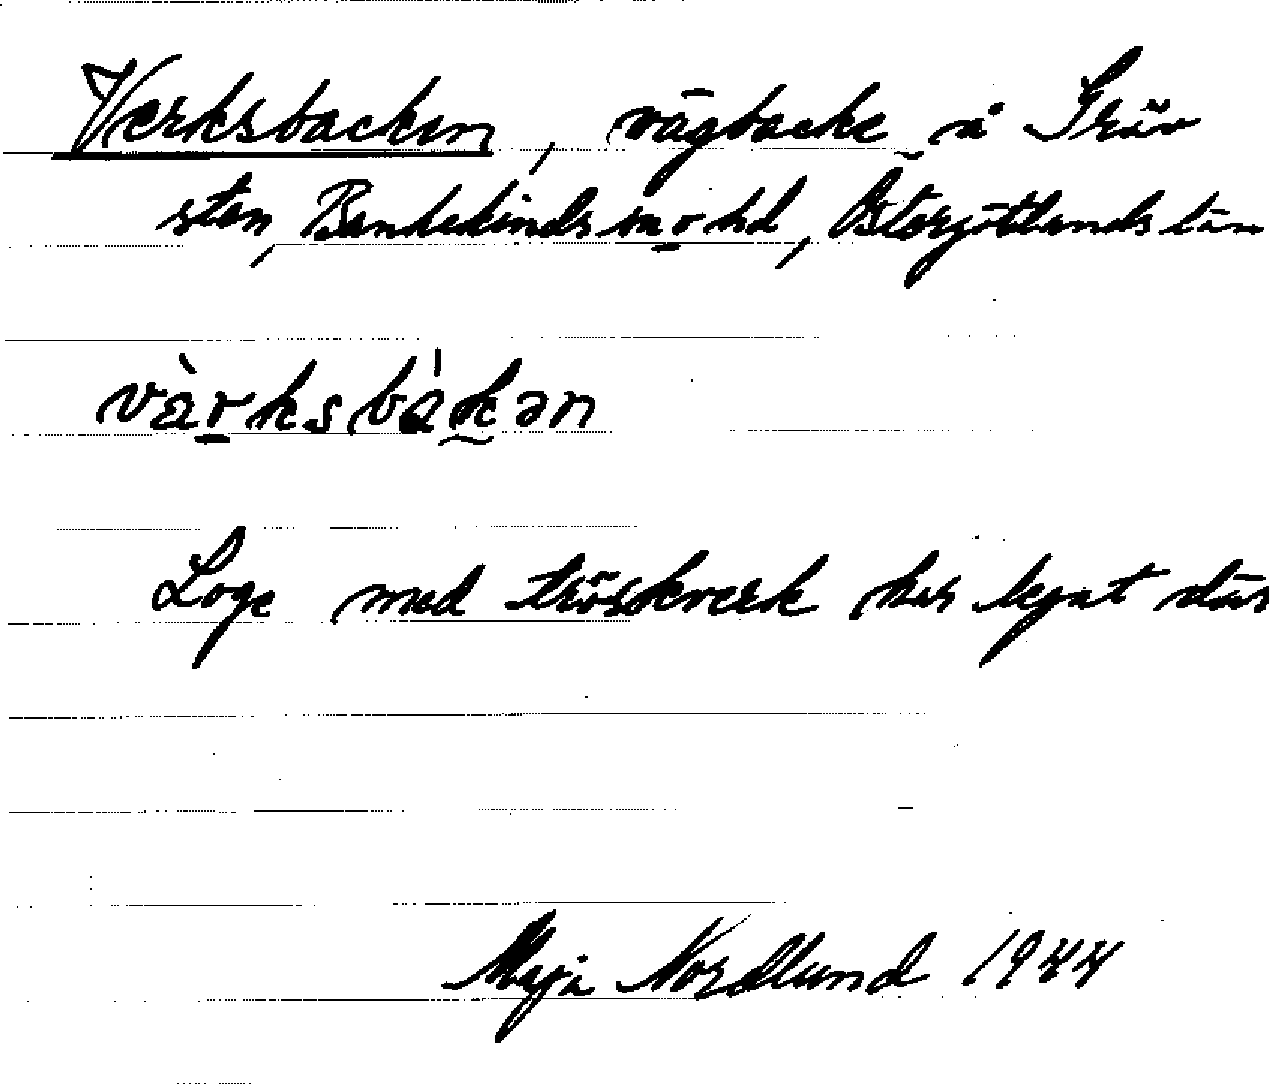 Verksbacken, vägbacke å Fräv
sten, Bankekinds sn o hd, Östergötlands län
vàrksbàkən
Loge med tröskverk har legat där
Maja Nordlund 1944